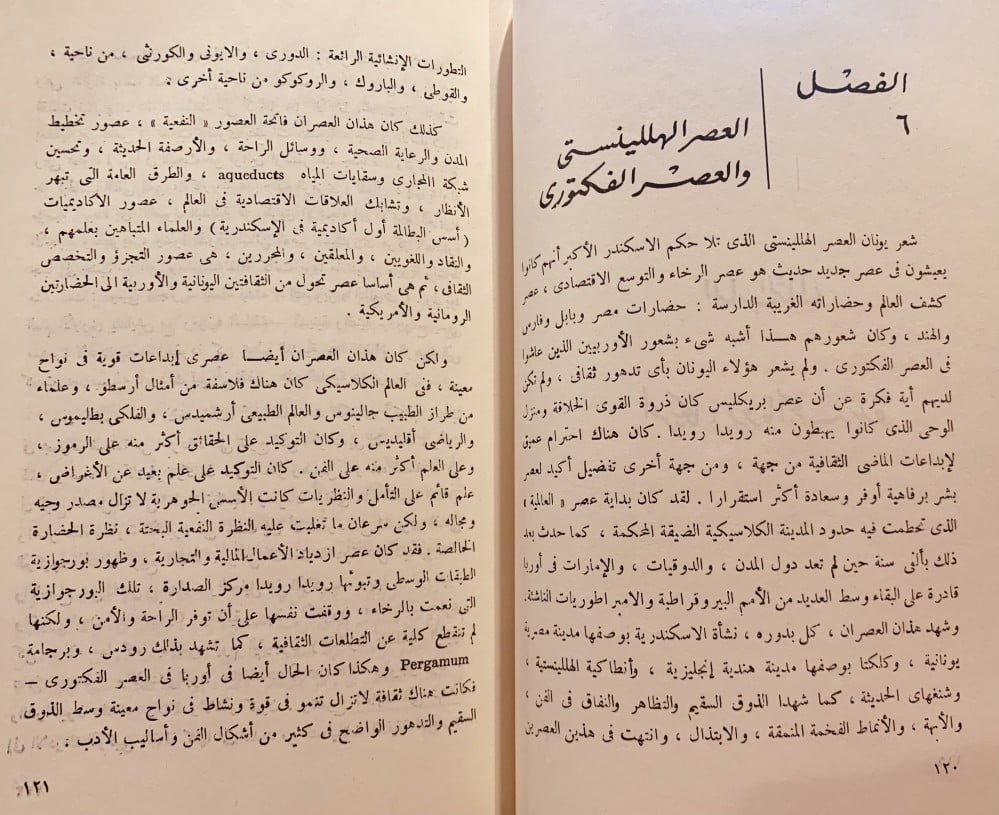 الفصل
٦
العصر الهللينستى
والعصر الفكتورى
شعر يونان العصر الهللينستى الذى تلا حكم الاسكندر الأكبر أنهم كانوا
يعيشون فى عصر جديد حديث هو عصر الرخاء والتوسع الاقتصادى ، عصر
كشف العالم وحضاراته الغريبة الدارسة : حضارات مصر وبابل وفارس
والهند ، وكان شعورهم هـــذا أشبه شىء بشعور الأوربيين الذين عاشوا
فى العصر الفكتورى . ولم يشعر هؤلاء اليونان بأى تدهور ثقافى ، ولم تكن
لديهم أية فكرة عن أن عصر بريكليس كان ذروة القوى الخلاقة ومنزل
الوحى الذى كانوا يهبطون منه رويدا رويدا . كان هناك احترام عميق
لإبداعات الماضى الثقافية من جهة ، ومن جهة أخرى تفضيل أكيد لعصر
بشر برفاهية أوفر وسعادة أكثر استقرارا . لقد كان بداية عصر « العالمية »
الذى تحطمت فيه حدود المدينة الكلاسيكية الضيقة المحكمة ، كما حدث بعد
ذلك بألفى سنة حين لم تعد دول المدن ، والدوقيات ، والإمارات فى أوربا
قادرة على البقاء وسط العديد من الأمم البيروقراطية والامبراطوريات الناشئة .
وشهد هذان العصران ، كل بدوره ، نشأة الاسكندرية بوصفها مدينة مصرية
يونانية ، وكلكتا بوصفها مدينة هندية إنجليزية ، وأنطاكية الهللينستية ،
وشنغهاى الحديثة ، كما شهدا الذوق السقيم والتظاهر والنفاق فى الفن ،
والأبهة ، والأنماط الفخمة المنمقة ، والابتذال ، وانتهت فى هذين العصرين
١٢٠
التطورات الإنشائية الرائعة : الدورى ، والايونى والكورنثى ، من ناحية ،
والقوطى ، والباروك ، والروكوكو من ناحية أخرى .
كذلك كان هذان العصران فاتحة العصور « النفعية » ، عصور تخطيط
المدن والرعاية الصحية ، ووسائل الراحة ، والأرصفة الحديثة ، وتحسين
شبكة المجارى وسقايات المياه aqueducts ، والطرق العامة التى تبهر
الأنظار ، وتشابك العلاقات الاقتصادية فى العالم ، عصور الأكاديميات
( أسس البطالمة أول أكاديمية فى الإسكندرية ) والعلماء المتباهين بعلمهم ،
والنقاد واللغويين ، والمعلقين ، والمحررين ، هى عصور التجزؤ والتخصص
الثقافى ، ثم هى أساسا عصر تحول من الثقافتين اليونانية والأوربية الى الحضارتين
الرومانية والأمريكية .
ولكن كان هذان العصران أيضــا عصرى إبداعات قوية فى نواح
معينة ، ففى العالم الكلاسيكى كان هناك فلاسفة من أمثال أرسطو ، وعلماء
من طراز الطبيب جالينوس والعالم الطبيعى أرشميدس ، والفلكى بطليموس ،
والرياضى أقليديس ، وكان التوكيد على الحقائق أكثر منه على الرموز ،
وعلى العلم أكثر منه على الفن . كان التوكيد على علم بعيد عن الأغراض ،
علم قائم على التأمل والنظريات كانت الأسس الجوهرية لا تزال مصدر وحيه
ومجاله ، ولكن سرعان ما تغلبت عليه النظرة النفعية البحتة ، نظرة الحضارة
الخالصة . فقد كان عصر ازدياد الأعمال المالية والتجارية ، وظهور بورجوازية
الطبقات الوسطى وتبوئها رويدا رويدا مركز الصدارة ، تلك البورجوازية
التى نعمت بالرخاء ، ووقفت نفسها على أن توفر الراحة والأمن ، ولكنها
لم تنقطع كلية عن التطلعات الثقافية ، كما تشهد بذلك رودس ، وبرجامة
Pergamum وهكذا كان الحال أيضا فى أوربا فى العصر الفكتورى —
فكانت هناك ثقافة لا تزال تنمو فى قوة ونشاط فى نواح معينة وسط الذوق
السقيم والتدهور الواضح فى كثير من أشكال الفن وأساليب الأدب .
١٢١